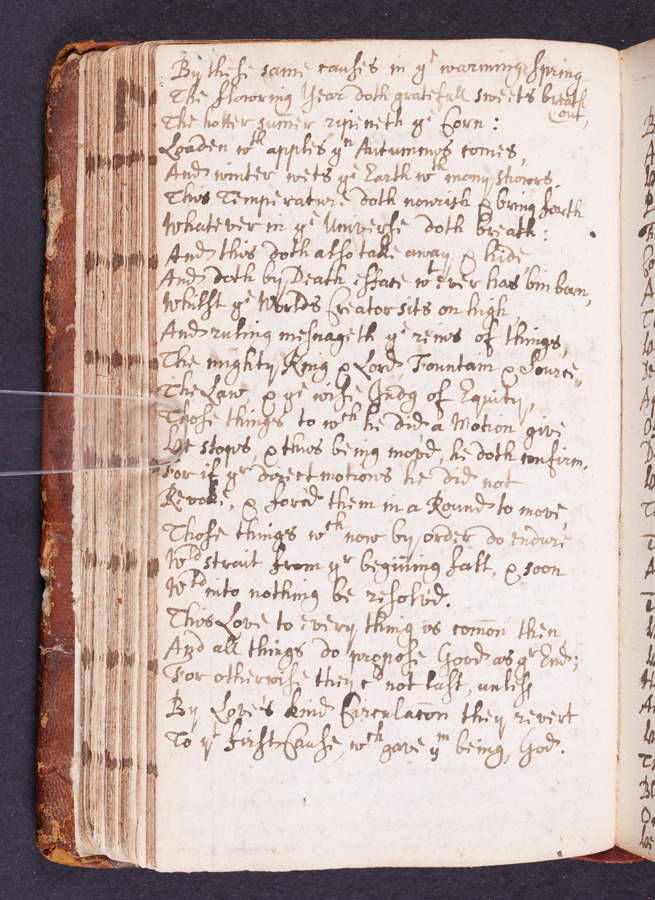 By these same causes in yᵉ warming Spring
The flowring Year doth gratefull sweets breath
out,
The hotter sum̄er ripeneth yᵉ Corn:
Loaden wᵗʰ apples yⁿ Autummus comes,
And winter wets yᵉ Earth wᵗʰ many showrs.
This Temperature doth nourish & bring forth
Whatever in yᵉ Universe doth breath:
And this doth also take away, & hide
And doth by Death efface wᵗever has bin born,
Whilst yᵉ Worlds Creator sits on high,
And ruling mesnageth yᵉ reins of things,
The mighty King & Lord, Fountain & Source,
The Law, & yᵉ wise Judg of Equity,
Those things to wᶜʰ he did a Motion give
He stops, & thus being mov'd, he doth confirm.
For if yʳ direct motions he did not
Revoke, & forc'd them in a Round to move,
Those things wᶜʰ now by order do endure
Wᵈ strait from yʳ begin̄ing fall, & soon
Wᵈ into nothing be resolv'd.
This Love to every thing is com̄on then
And all things do propose Good as yʳ End;
For otherwise they cᵈ not last, unless
By Love's kind Circulac̄on they revert
To yᵉ first Cause, wᶜʰ gave yᵐ being, God.